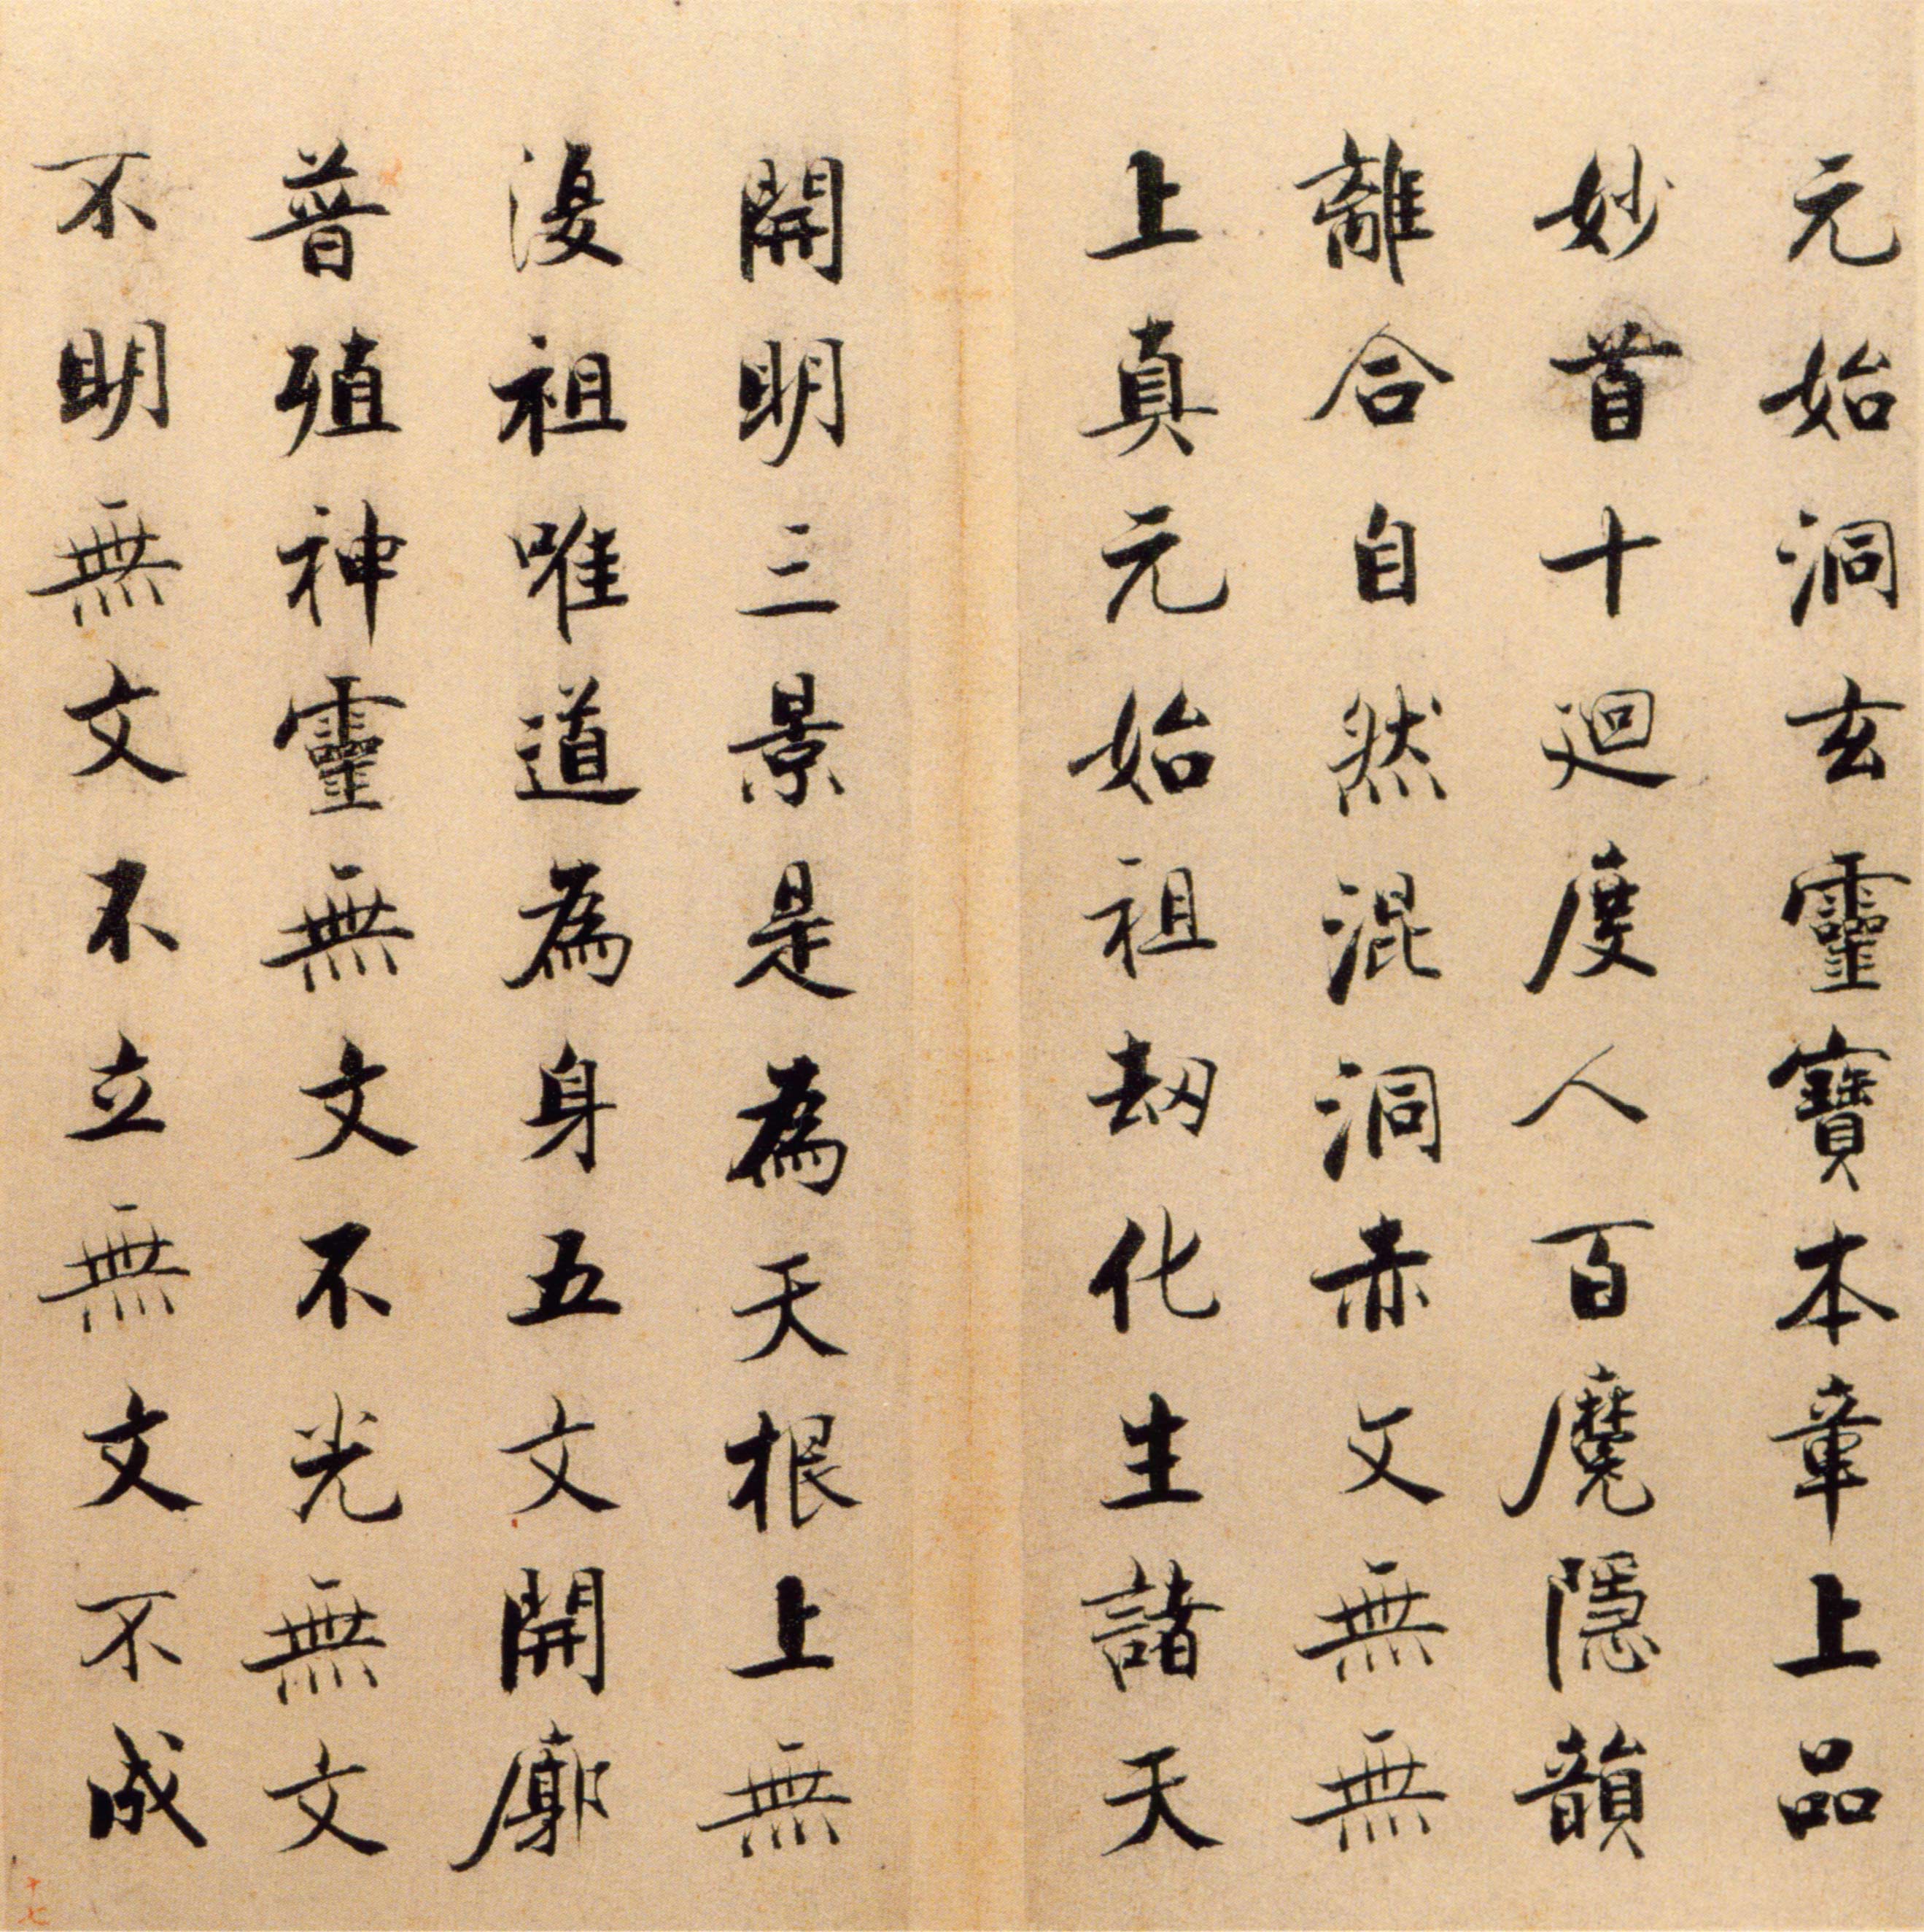 元始洞玄靈寶本章上品
妙首十迴度人百魔隱韻
離合自然混洞赤文無無
上真元始祖劫化生諸天
開明三景是為天根上無
復祖唯道為身五文開廓
普殖神靈無文不光無文
不明無文不立無文不成
十七